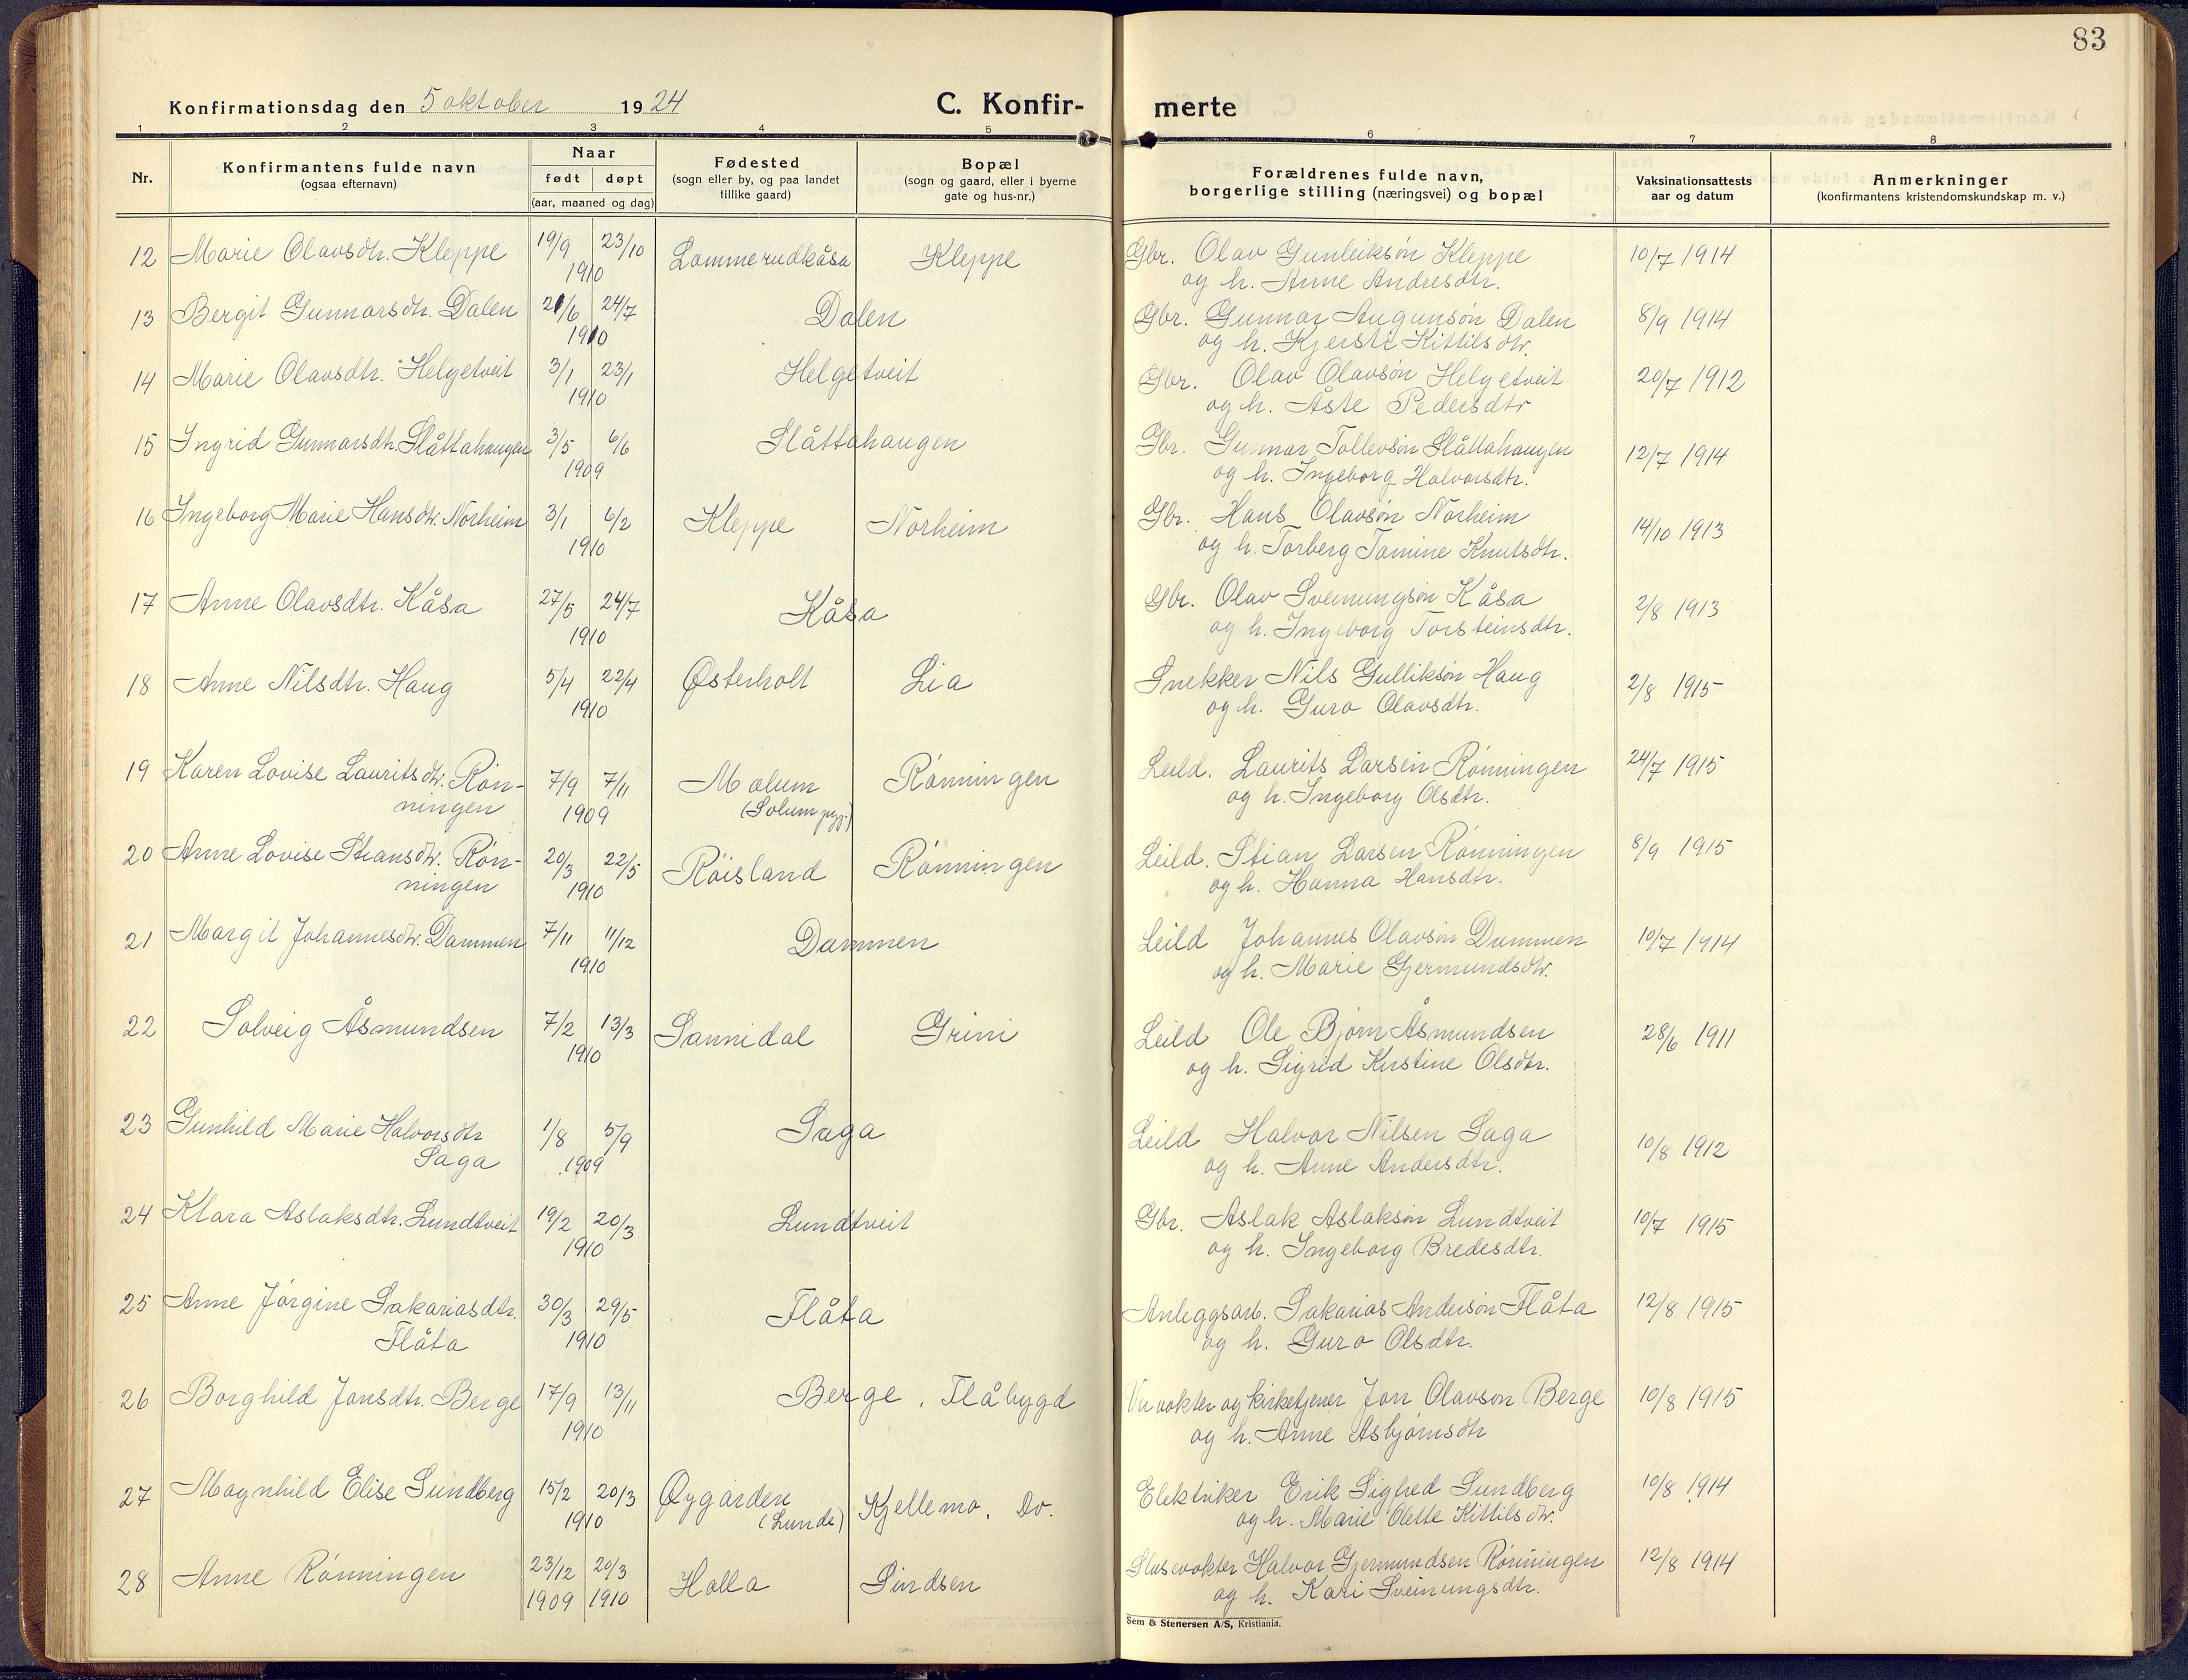 83
Konfirmationsdag den 5 oktober 1924
C. Konfir-merte
1 2 3 4 5 6 7 8
Nr.
Konfirmantens fulde navn
(ogsaa efternavn)
Naar
født døpt
(aar, maaned og dag)
Fødested
(sogn eller by, og paa landet
tillike gaard)
Bopæl
(sogn og gaard, eller i byerne
gate og hus-nr.)
Forældrenes fulde navn,
borgerlige stilling (næringsvei) og bopæl
Vaksinationsattests
aar og datum
Anmerkninger
(konfirmantens kristendomskundskap m. v.)
12 Marie Olavsdtr. Kleppe 19/9 23/10 Lammerudkåsa Kleppe Gbr. Olav Gunleiksøn Kleppe 10/7 1914
1910 og h. Anne Andresdtr.
13 Bergit Gunnarsdtr. Dalen 21/6 24/7 Dalen Gbr. Gunnar Augunsøn Dalen 8/9 1914
1910 og h. Kjersti Kittilsdtr.
14 Marie Olavsdtr. Helgetveit 3/1 23/1 Helgetveit Gbr. Olav Olavsøn Helgetveit 20/7 1912
1910 og h. Åste Pedersdtr
15 Ingrid Gunnarsdtr. Slåttahaugen 3/5 6/6 Slåttahaugen Gbr. Gunnar Tollevsøn Slåttahaugen 12/7 1914
1909 og h. Ingeborg Halvorsdtr.
16 Ingeborg Marie Hansdtr. Norheim 3/1 6/2 Kleppe Norheim Gbr. Hans Olavsøn Norheim 14/10 1913
1910 og h. Torberg Tomine Knutsdtr.
17 Anne Olavsdtr. Kåsa 27/5 24/7 Kåsa Gbr. Olav Sveinungsøn Kåsa 2/8 1913
1910 og h. Ingeborg Torsteinsdtr.
18 Anne Nilsdtr. Haug 5/4 22/4 Østerholt Lia Snekker Nils Gulliksøn Haug 2/8 1915
1910 og h. Guro Olavsdtr.
19 Karen Lovise Lauritsdtr. Røn- 7/9 7/11 Mælum Rønningen Leild. Laurits Larsen Rønningen 24/7 1915
ningen 1909 (Solum pgj.) og h. Ingeborg Olsdtr.
20 Anne Lovise Stiansdtr. Røn- 20/3 22/5 Røisland Rønningen Leild. Stian Larsen Rønningen 8/9 1915
ningen 1910 og h. Hanna Hansdtr.
21 Margit Johannesdtr. Dammen 7/11 11/12 Dammen Leild Johannes Olavsøn Dammen 10/7 1914
1910 og h. Marie Gjermundsdtr.
22 Solveig Åsmundsen 7/2 13/3 Sannidal Grini Leild Ole Bjørn Åsmundsen 28/6 1911
1910 og h. Sigrid Kirstine Olsdtr.
23 Gunhild Marie Halvorsdtr 1/8 5/9 Saga Leild Halvor Nilsen Saga 10/8 1912
Saga 1909 og h. Anne Andersdtr.
24 Klara Aslaksdtr. Lundtveit 19/2 20/3 Lundtveit Gbr. Aslak Aslaksøn Lundtveit 10/7 1915
1910 og h. Ingeborg Bredesdtr.
25 Anne Jørgine Sakariasdtr. 30/3 29/5 Flåta Anleggsarb. Sakarias Andersøn Flåta 12/8 1915
Flåta 1910 og h. Guro Olsdtr.
26 Borghild Jonsdtr. Berge 17/9 13/11 Berge, Flåbygd Veivokter og kirketjener Jon Olavsøn Berge 10/8 1915
1910 og h. Anne Asbjørnsdtr
27 Magnhild Elise Sundberg 15/2 20/3 Øygarden Kjellemo, Do. Elektriker Erik Sigfred Sundberg 10/8 1914
1910 (Lunde) og h. Marie Olette Kittilsdtr.
28 Anne Rønningen 23/12 20/3 Holla Sindsen Slusevokter Halvor Gjermundsen Rønningen 12/8 1914
1909 1910 og h. Kari Sveinungsdtr.
Sem & Stenersen A/S, Kristiania.